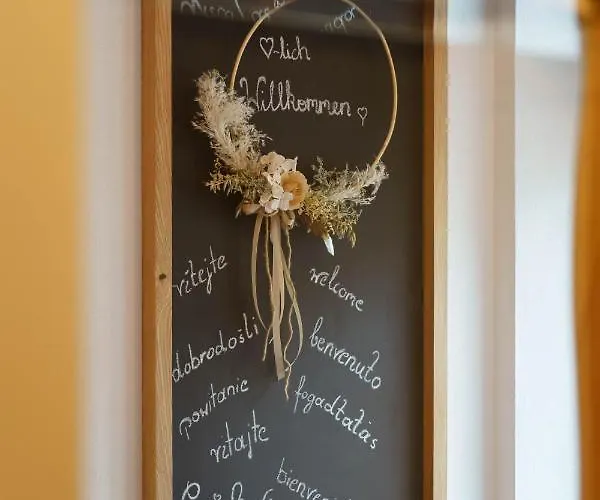 ♡-lich
Willkommen ♡
vítejte
welcome
dobrodošli
benvenuto
powitanie
fogadtatás
vitajte